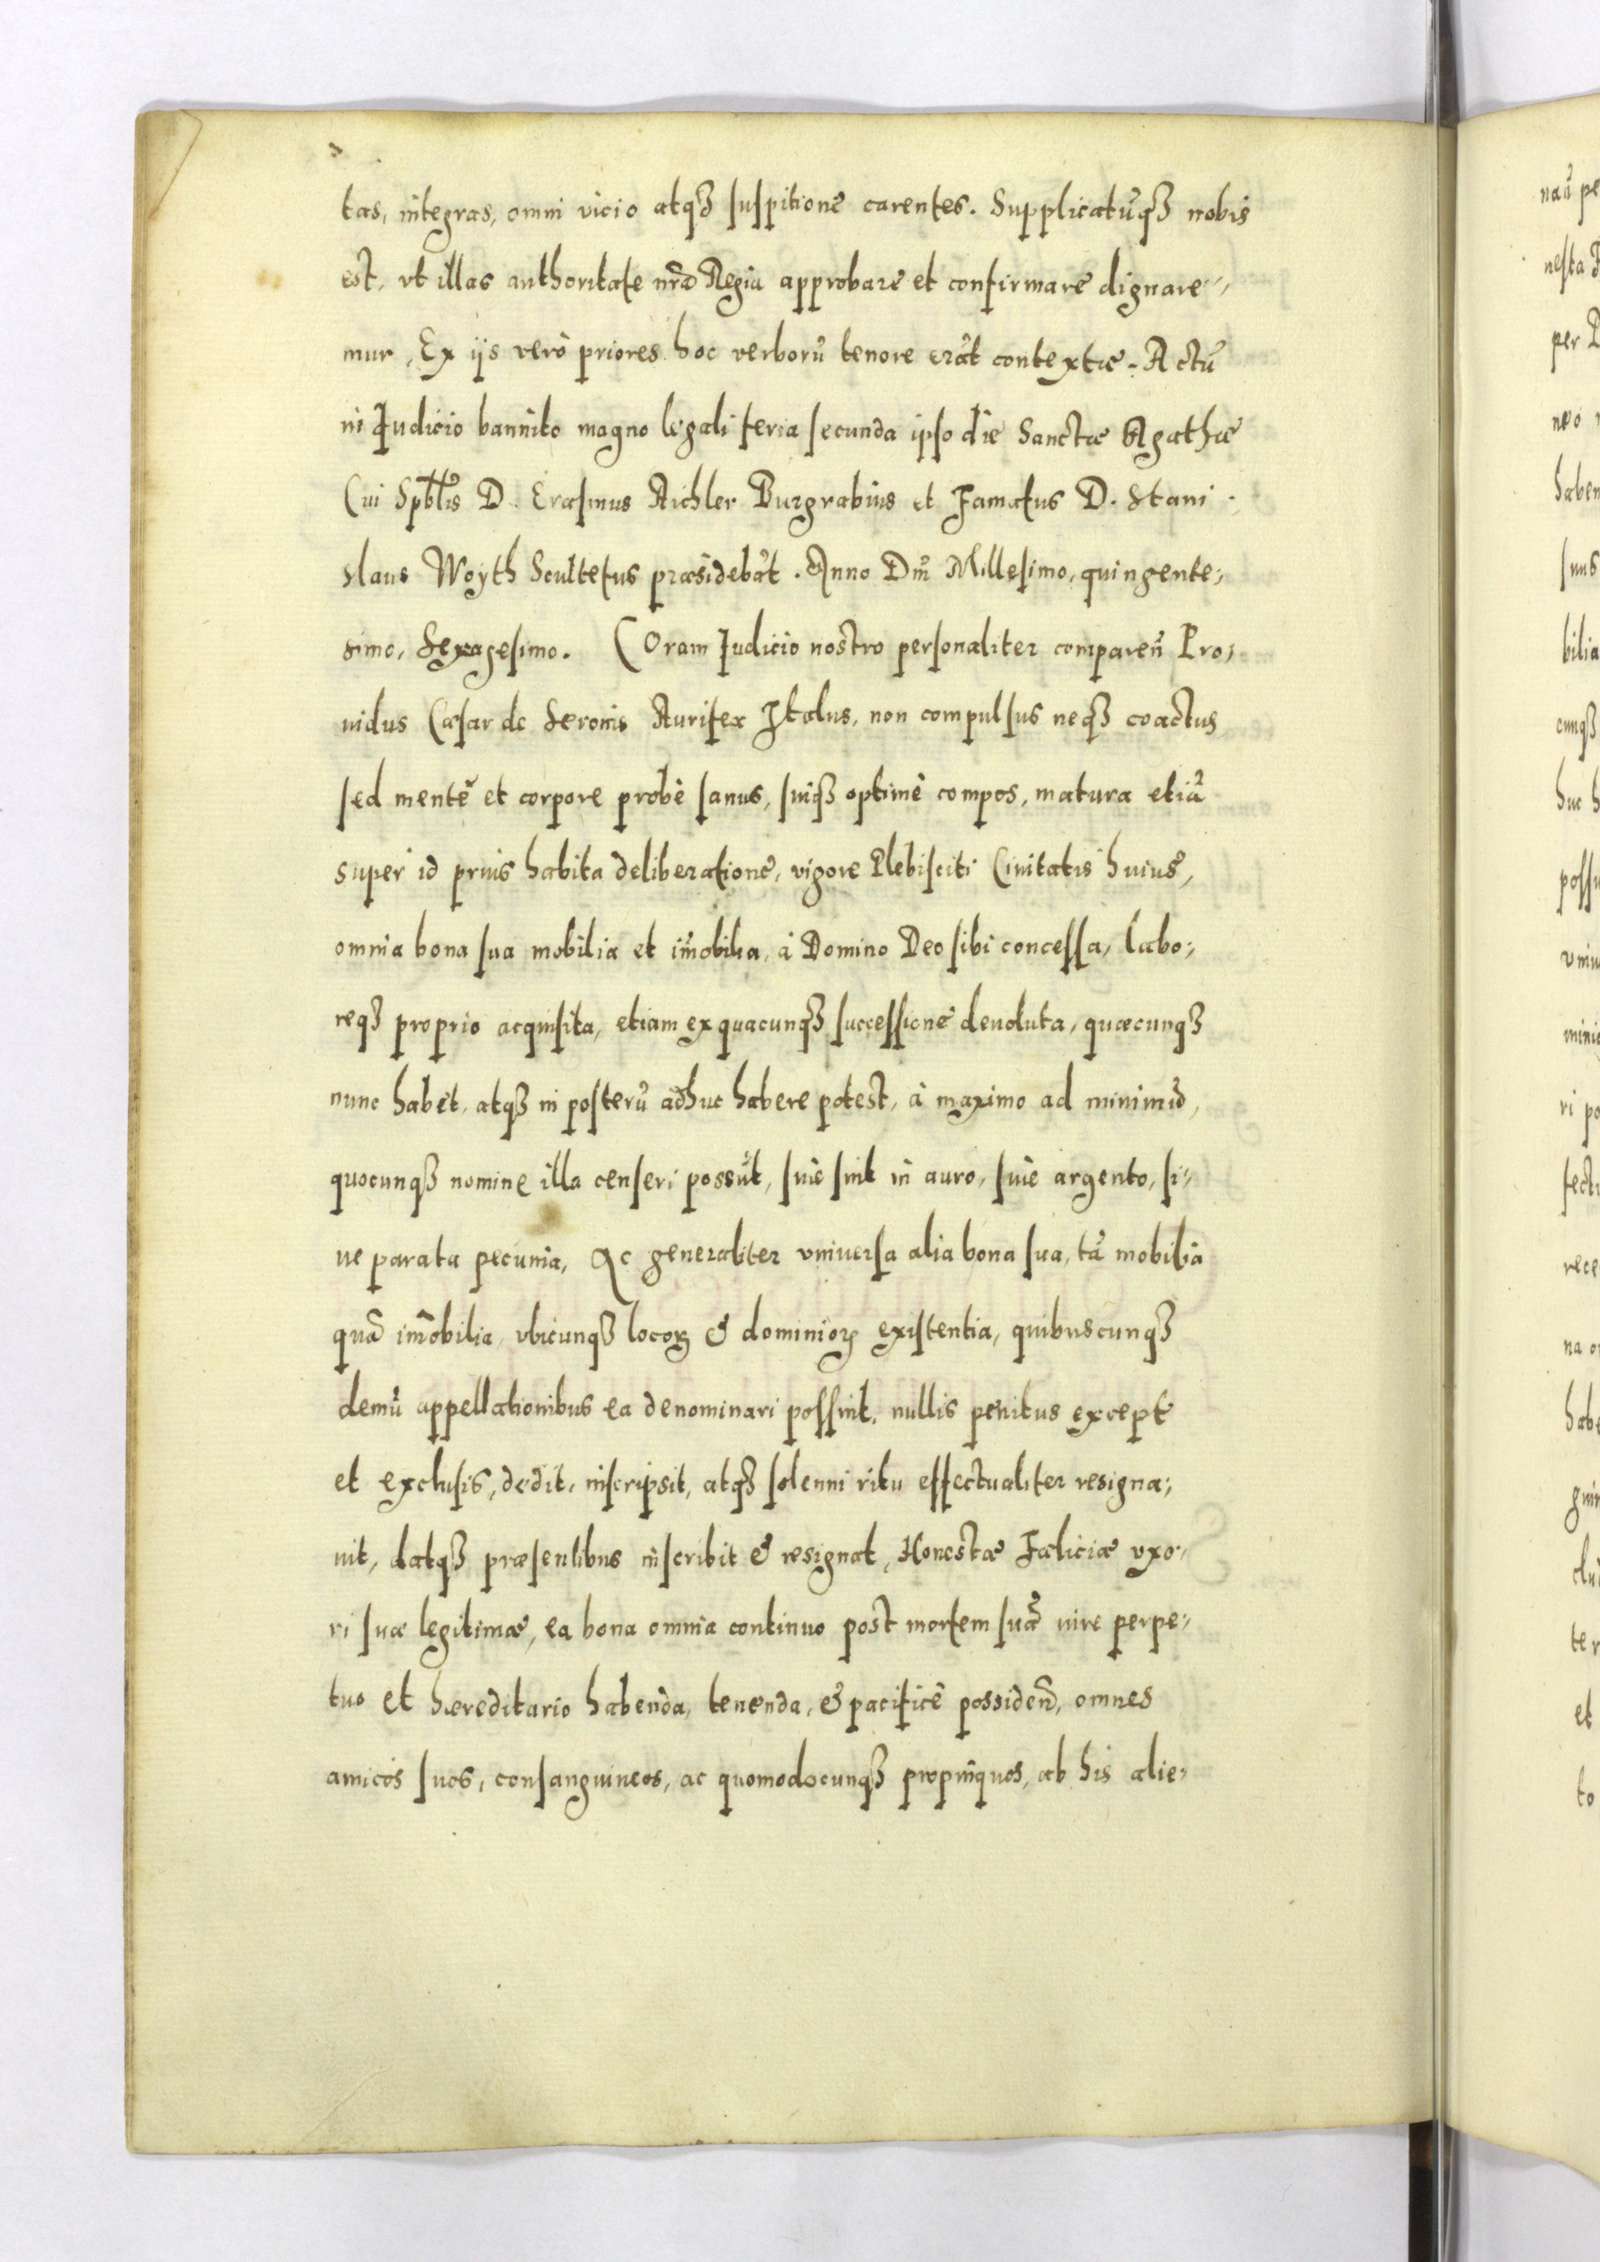 tas, integras, omni vicio atqꝫ suspitione carentes. Supplicatūqꝫ nobis
est, vt illas authoritate nr̃a Regia approbare et confirmare dignare-
mur, Ex ijs verò priores hoc verborū tenore erāt contextæ. Actū
in Iudicio bannito magno legali feria secunda ipso die Sanctæ Agathæ
Cui Spbľis D. Erasmus Aichler Burgrabius et Famatus D. Stani
slaus Woyth Scultetus præsidebāt. Anno Dnĩ Millesimo, quingente,
simo, Sexagesimo. Coram Iudicio nostro personaliter comparen̄ Pro,
uidus Cæsar de Seronis Aurifex Italus, non compulsus neqꝫ coactus
sed mente et corpore probè sanus, suiqꝫ optimè compos, matura etiā
super id prius habita deliberatione, vigore Plebisciti Ciuitatis huius,
omnia bona sua mobilia et im̄obilia, à Domino Deo sibi concessa, labo,
reqꝫ proprio acquisita, etiam ex quacunqꝫ successione deuoluta, quæcunqꝫ
nunc habet, atqꝫ in posterū adhuc habere potest, à maximo ad minimū,
quocunqꝫ nomine illa censeri possūt, siue sint in auro, siue argento, si-
ue parata pecunia, Ac generaliter vniuersa alia bona sua, tā mobilia
quā im̄obilia, vbicunqꝫ locoꝝ & dominioꝝ existentia, quibuscunqꝫ
demū appellationibus ea denominari possint, nullis penitus except̄
et exclusis, dedit, inscripsit, atqꝫ solenni ritu effectualiter resigna,
uit, datqꝫ præsentibus inscribit & resignat, Honestæ Fæliciæ vxo-
ri suæ legitimæ, ea bona omnia continuo post mortem suā iure perpe,
tuo et hæreditario habenda, tenenda, & pacificè possiden̄, omnes
amicos suos, consanguineos, ac quomodocunqꝫ propinquos, ab his alie,